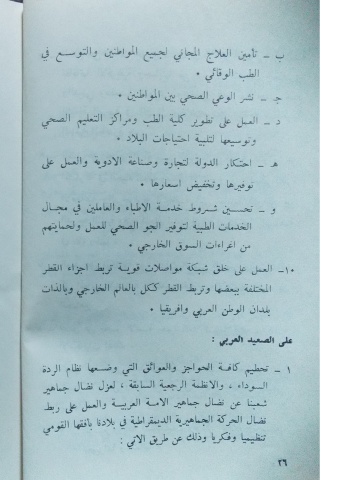 ب – تأمين العلاج المجاني لجميع المواطنين والتوسع في
الطب الوقائي .
جـ – نشر الوعي الصحي بين المواطنين .
د – العمل على تطوير كلية الطب ومراكز التعليم الصحي
وتوسيعها لتلبية احتياجات البلاد .
هـ – احتكار الدولة لتجارة وصناعة الادوية والعمل على
توفيرها وتخفيض اسعارها .
و – تحسين شروط خدمة الاطباء والعاملين في مجال
الخدمات الطبية لتوفير الجو الصحي للعمل ولحمايتهم
من اغراءات السوق الخارجي .
١٠– العمل على خلق شبكة مواصلات قوية تربط اجزاء القطر
المختلفة ببعضها وتربط القطر ككل بالعالم الخارجي وبالذات
بلدان الوطن العربي وافريقيا .
على الصعيد العربي :
١ – تحطيم كافة الحواجز والعوائق التي وضعها نظام الردة
السوداء ، والانظمة الرجعية السابقة ، لعزل نضال جماهير
شعبنا عن نضال جماهير الامة العربية والعمل على ربط
نضال الحركة الجماهيرية الديمقراطية في بلادنا بافقها القومي
تنظيميا وفكريا وذلك عن طريق الاتي :
٢٦